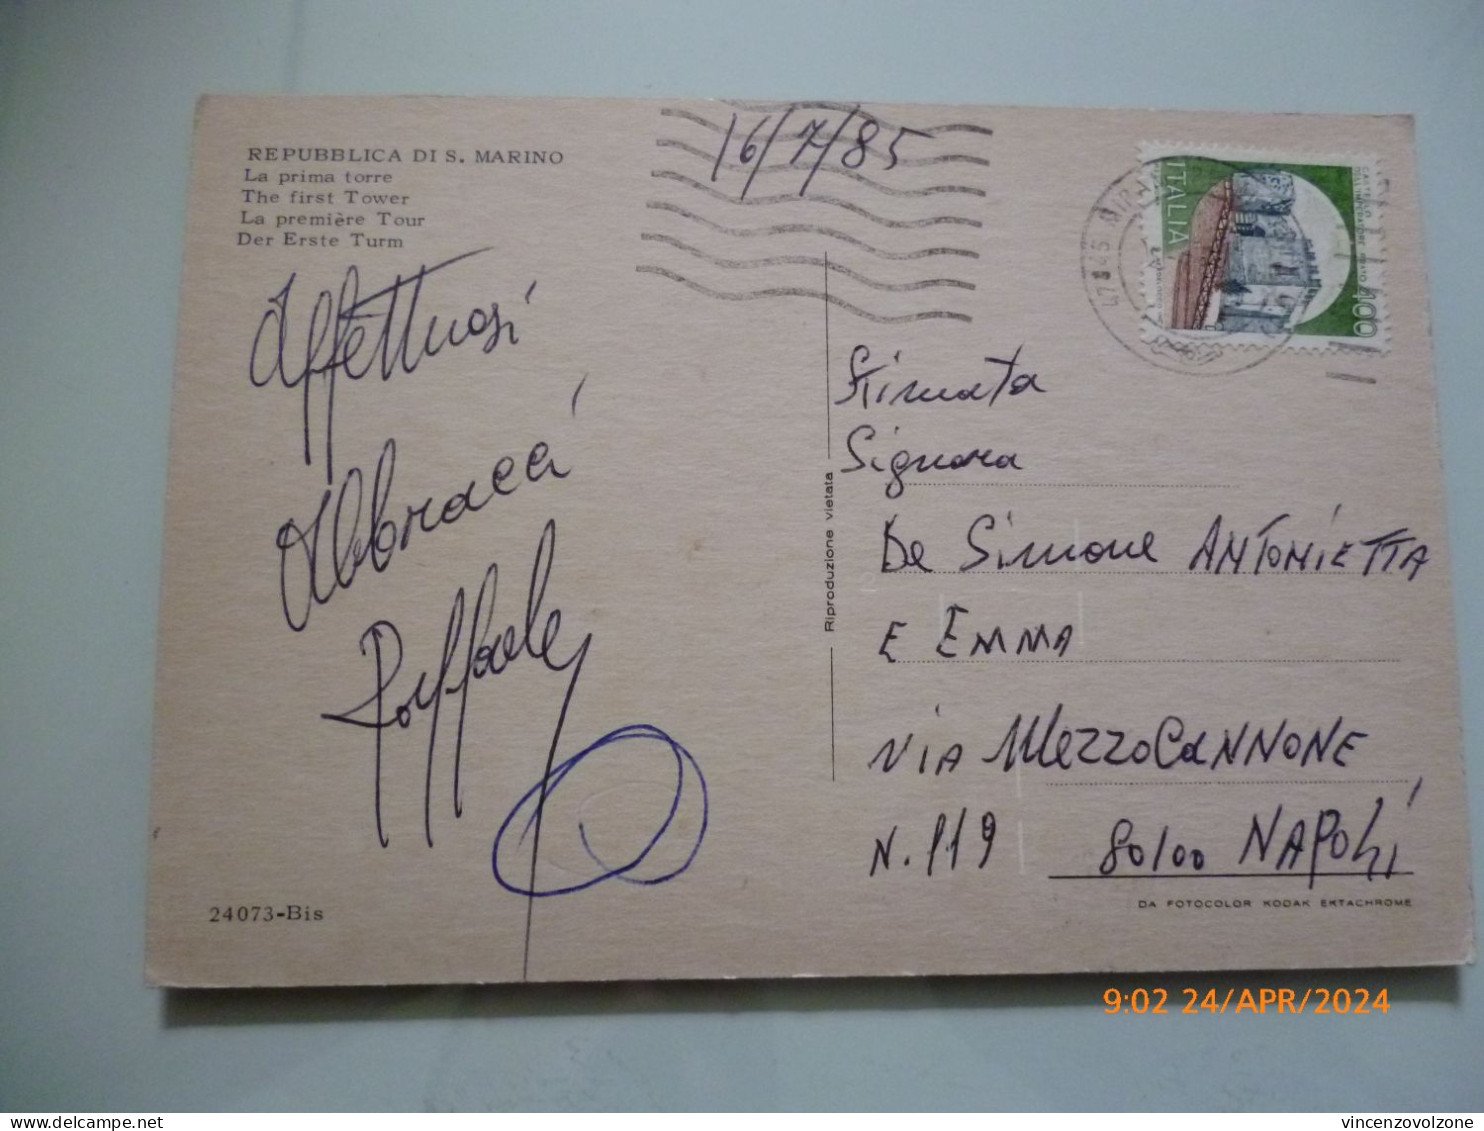 REPUBBLICA DI S. MARINO
La prima torre
The first Tower
La première Tour
Der Erste Turm
16/7/85
ITALIA
400
Affettuosi
Abbracci
Raffaele
Riproduzione vietata
Stimata
Signora
De Simone ANTONIETTA
E EMMA
VIA MEZZOCANNONE
N. 119 80100 NAPOLI
24073-Bis
DA FOTOCOLOR KODAK EKTACHROME
9:02 24/APR/2024
vincenzovolzone